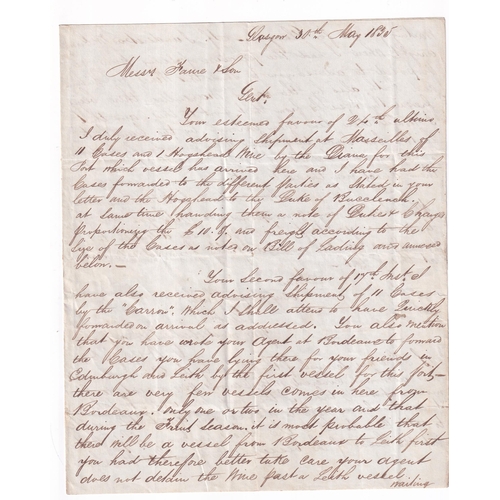 Glasgow 30th May 1835
Messrs Faure & Son
Gent.
Your esteemed favour of 24th ultimo
I duly received advising shipment at Marseilles of
11 Cases and 1 Hogshead Wine by the Diana for this
Port which vessel has arrived here and I have had the
Cases forwarded to the different Parties as stated in your
letter and the Hogshead to the Duke of Buccleuch
at same time handing them a note of Duties & Charges
Proportioning the and freight according to the
size of the Cases as noted on Bill of Lading and annexed
below.—
Your Second favour of 17th Inst. I
have also received advising shipment of 11 Cases
by the "Carron" which I shall attend to have Quickly
forwarded on arrival as addressed. You also mention
that you have wrote your Agent at Bordeaux to forward
the Cases you have lying there for your friends in
Edinburgh and Leith by the first vessel for this port—
there are very few vessels comes in here from
Bordeaux. Only one or two in the year and that
during the Fruit season. it is most probable that
there will be a vessel from Bordeaux to Leith first
you had therefore better take care your agent
does not detain the Wine past a Leith vessel
waiting